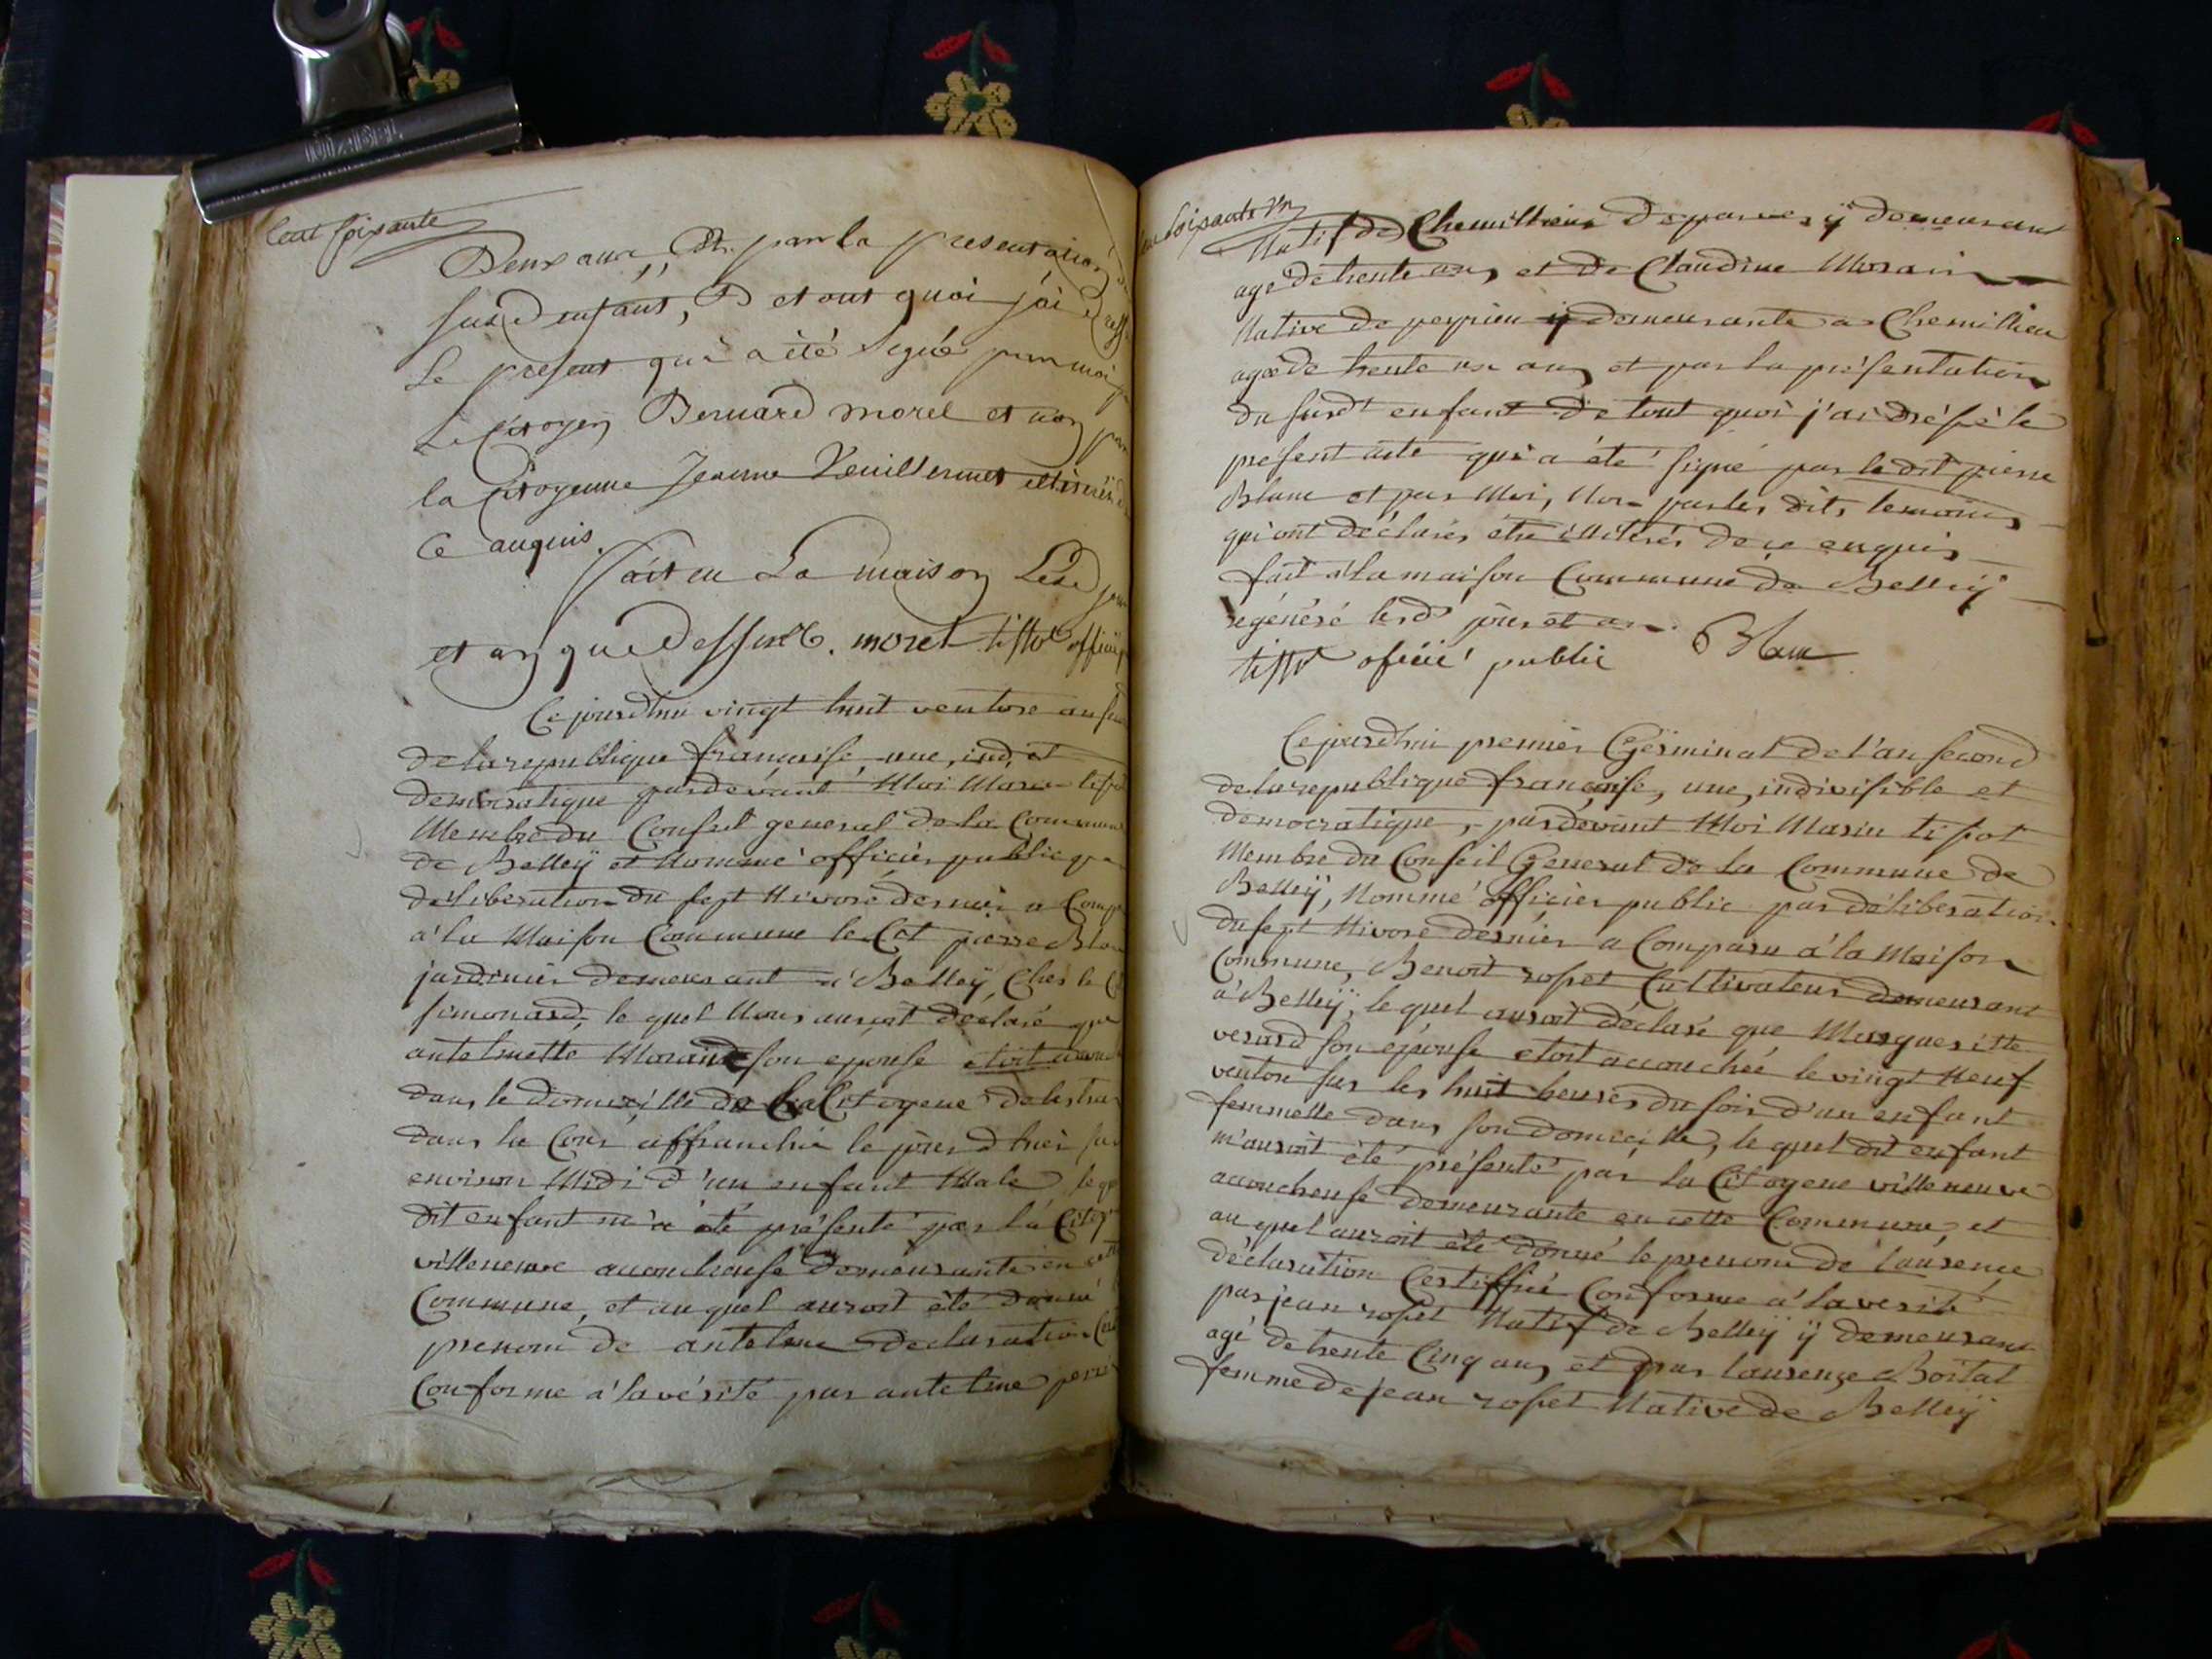 Cent soixante
Deux ans, Et par la presentation
susd enfant, D et out quoi j'ai
Le present qui a été signé par moi
Le Citoyen Bernard morel et non par
la Citoyenne Jeanne Vuillermet
Ce anquis.
fait en La maison Lesd jour
et an que dessus B. morel tissot officier
Ce jourdhui vingt huit ventose an
de la republique française, une, ind, et
democratique pardevant Moi Marin
Membre du Conseil general de la Commune
de Belleÿ et Nommé officier public par
délibération du sept Nivose dernier a
à la Maison Commune le Cit pierre Blanc
jardinier demeurant à Belleÿ, Chés le
simonard, le quel Nous auroit déclaré que
antelmette Morain son epouse etoit
dans le domicille de la Citoyene
dans la Cour affranchie le jour d hier sur
environ Midi d'un enfant Male, le
dit enfant m'a été présenté par la
villeneuve accoucheuse demeurante en cette
Commune, et auquel auroit été donné
prenom de antelme declaration
Conforme à la vérité par antelme
soixante un
Natif de Chemillieu de parves ÿ demeurant
agé de trente ans et de Claudine Morain
Native de peyrieu ÿ demeurante a Chemillieu
agée de trente un ans et par la présentation
du susdt enfant de tout quoi j'ai dressé le
present acte qui a été signé par le dit pierre
Blanc et par Moi, Non par les dits temoins
qui ont déclarés être illiterés de ce enquis
fait à la maison Commune de Belleÿ
régénéré lesd jour et an. Blanc
tissot oficié public
Ce jourdhui premier Germinal de l'an second
de la republique française, une, indivisible et
démocratique, pardevant Moi Marin tissot
Membre du Conseil General de la Commune de
Belleÿ, Nommé officier public par délibération
du sept Nivose dernier a Comparu à la Maison
Commune, Benoit rosset Cultivateur demeurant
à Belleÿ, le quel auroit déclaré que Marguerite
verard son épouse etoit accouchée le vingt Neuf
ventose sur les huit heures du soir d'un enfant
femmelle dans son domicille, le quel dit enfant
m'auroit été présenté par la Citoyene villeneuve
accoucheuse demeurante en cette Commune, et
au quel auroit été donné le prenom de laurence
déclaration Certiffiée Conforme à la verité
par jean rosset Natif de Belleÿ ÿ demeurant
agé de trente Cinq ans et par laurence Boital
femme de jean rosset Native de Belleÿ